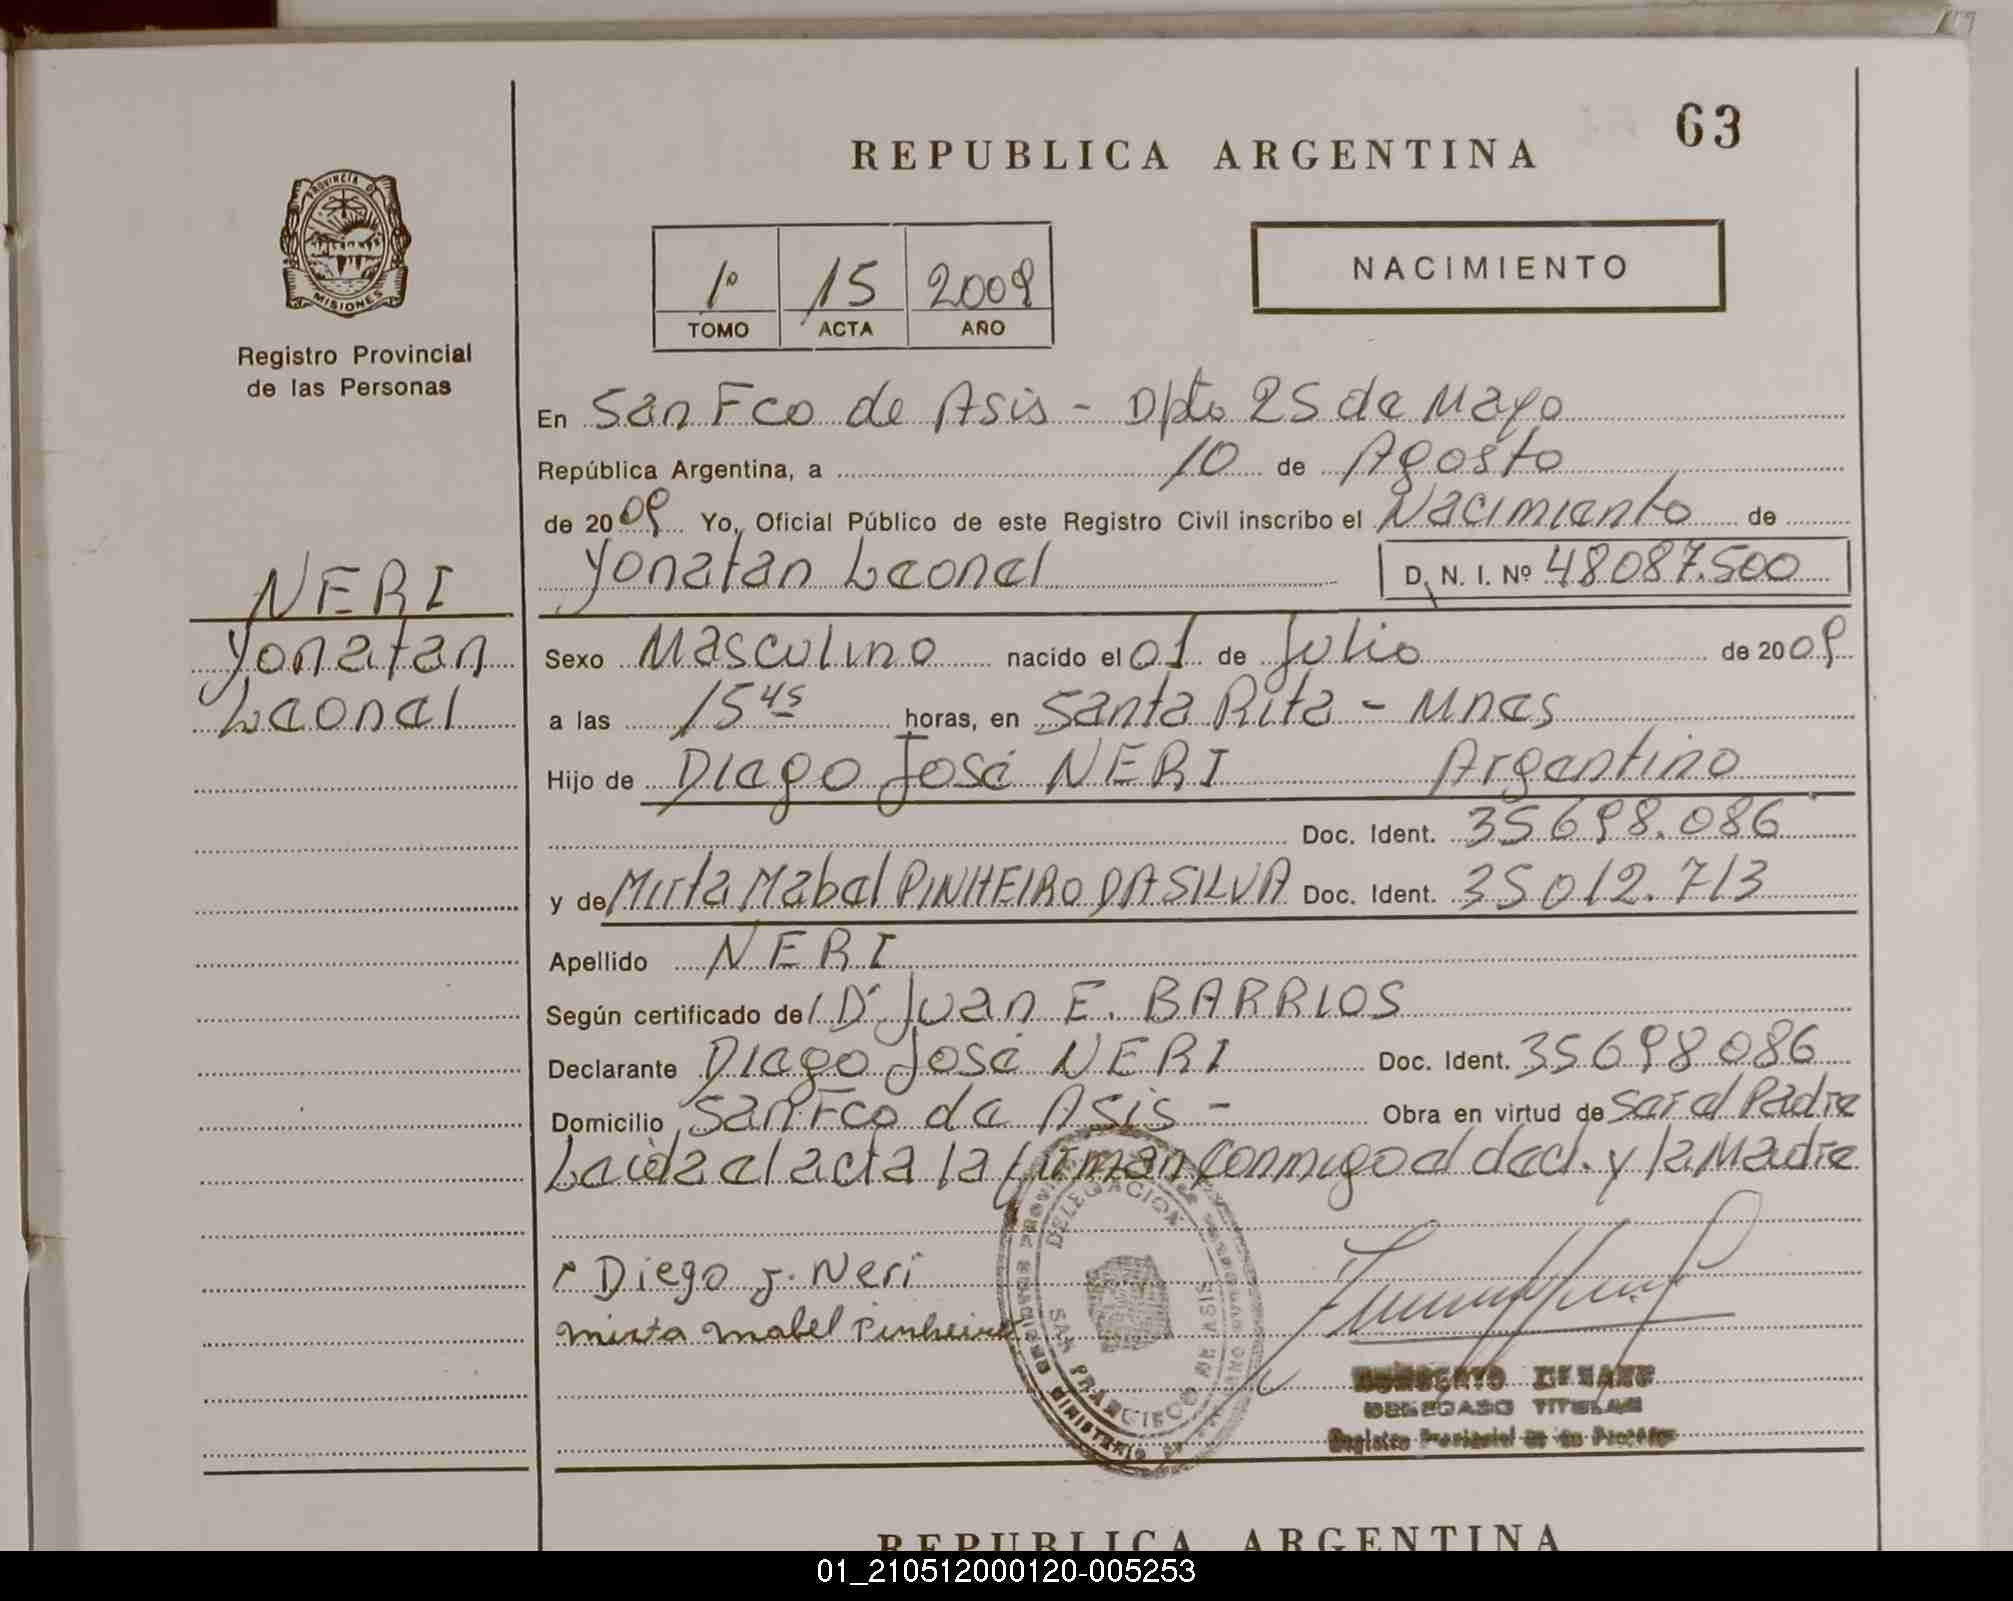 63
REPUBLICA ARGENTINA
PROVINCIA D
MISIONES
Registro Provincial
de las Personas
1º 15 2009
TOMO ACTA AÑO
NACIMIENTO
En San Fco de Asis - Dpto 25 de Mayo
República Argentina, a 10 de Agosto
de 2009 Yo, Oficial Público de este Registro Civil inscribo el Nacimiento de
Yonatan Leonel D. N. I. Nº 48087.500
NERI
Yonatan
Leonel
Sexo Masculino nacido el 01 de Julio de 2009
a las 15 45 horas, en Santa Rita - Mnes
Hijo de Diego José NERI Argentino
Doc. Ident. 35698.086
y de Mirta Mabel PINHEIRO DA SILVA Doc. Ident. 35012.713
Apellido NERI
Según certificado del Dr Juan E. BARRIOS
Declarante Diego José NERI Doc. Ident. 35698086
Domicilio San Fco de Asis - Obra en virtud de Ser el Padre
Leida el acta la firman conmigo el decl. y la Madre
Diego J. Neri
Mirta Mabel Pinheiro
DELEGACION
SAN FRANCISCO DE ASIS
MINISTERIO
DELEGADO TITULAR
Registro Provincial de las Personas
REPUBLICA ARGENTINA
01_210512000120-005253